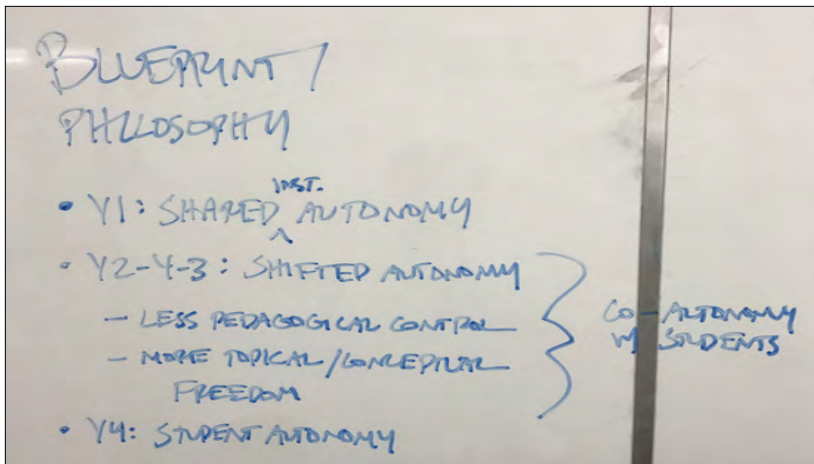 BLUEPRINT /
PHILOSOPHY
• Y1: SHARED INST. AUTONOMY
• Y2-Y-3: SHIFTED AUTONOMY
– LESS PEDAGOGICAL CONTROL
– MORE TOPICAL/CONCEPTUAL
FREEDOM
CO-AUTONOMY
W/ STUDENTS
• Y4: STUDENT AUTONOMY